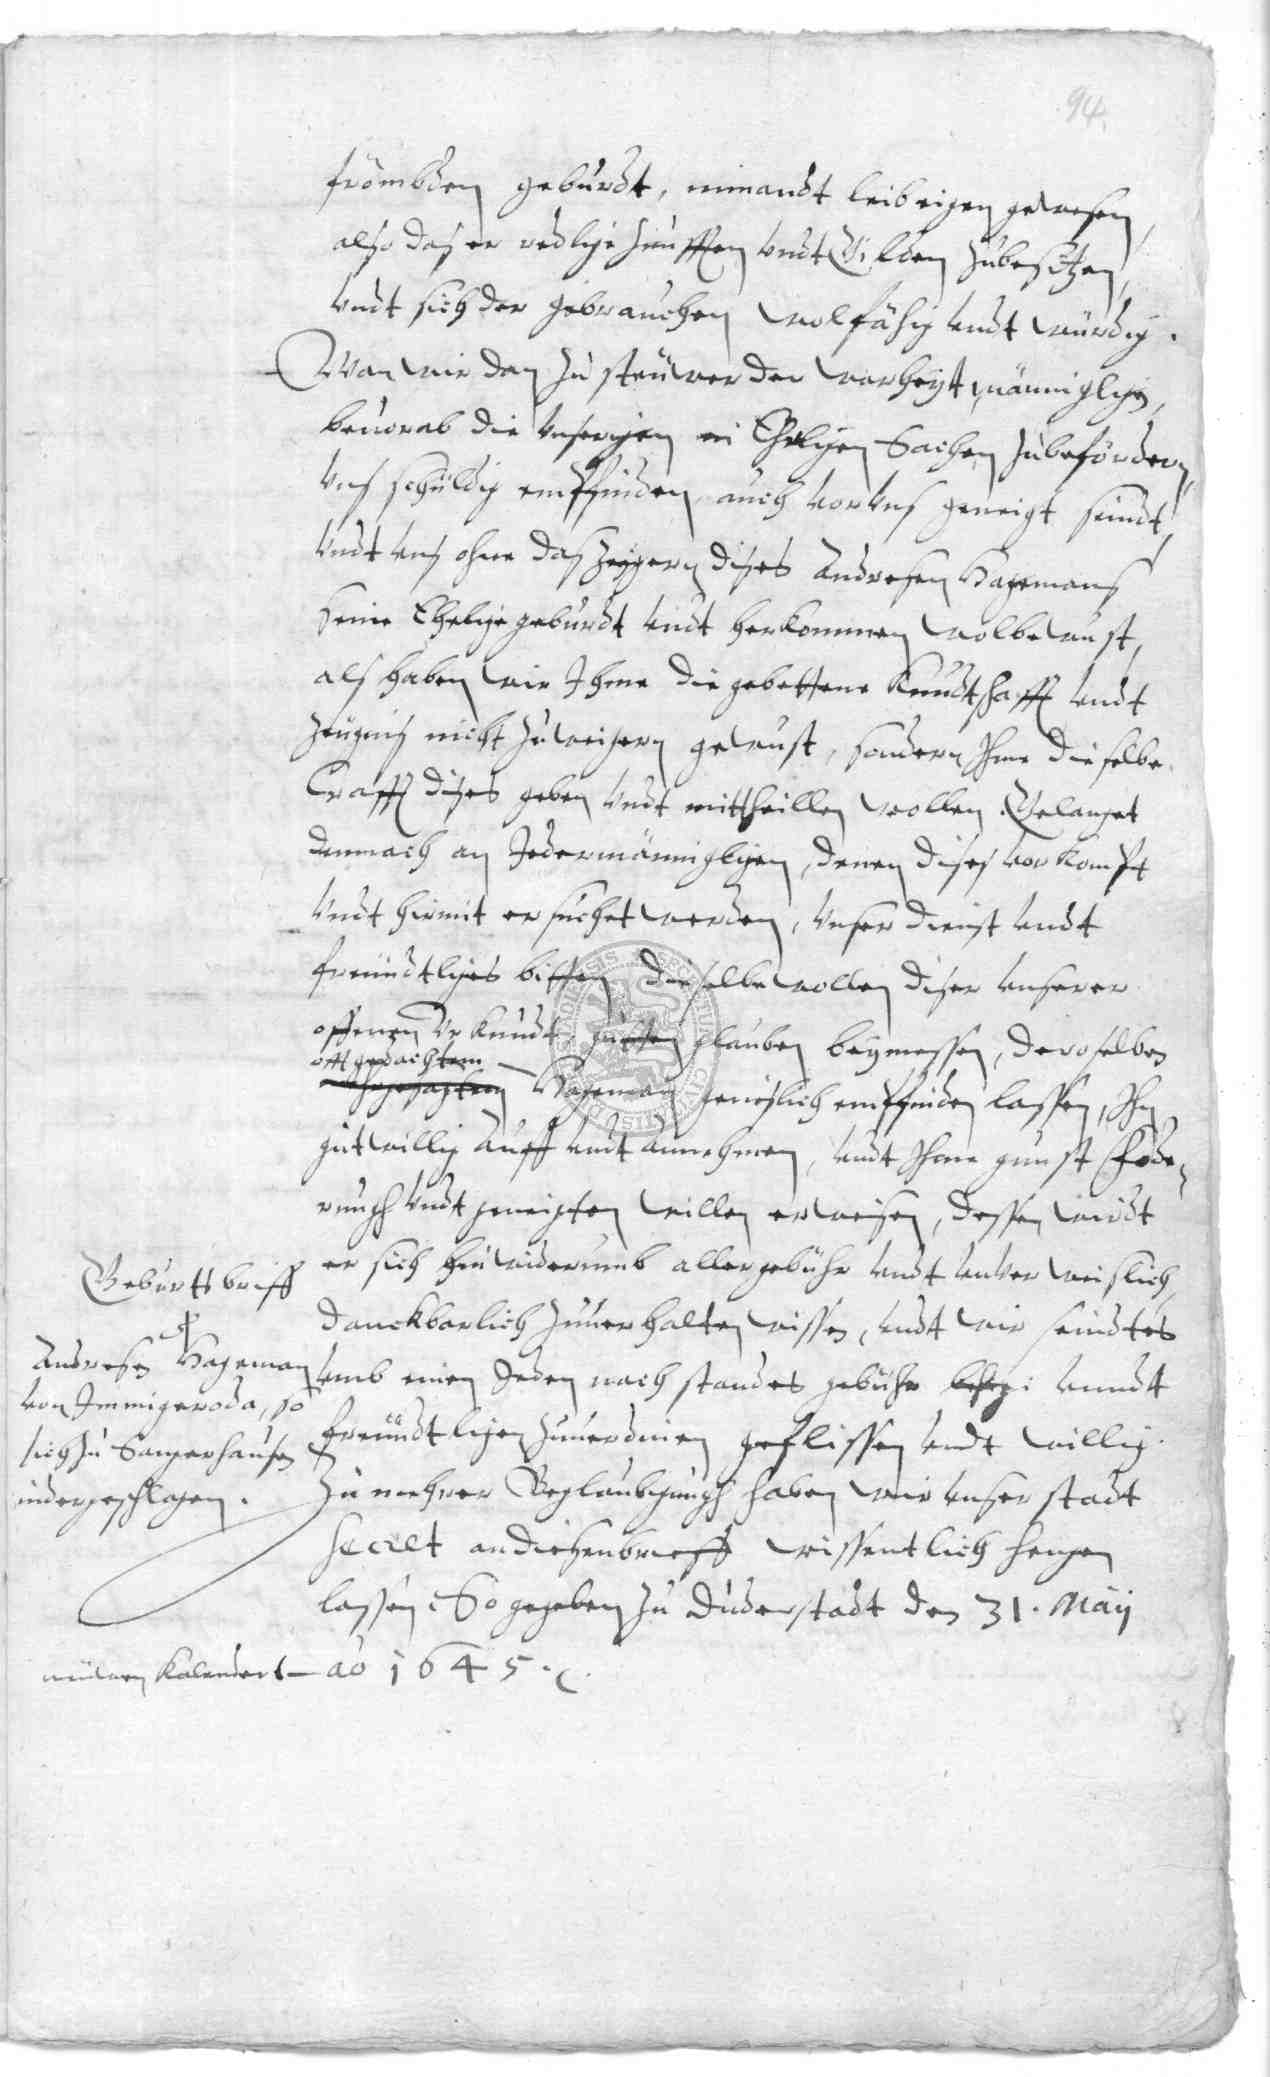 94.
frömbden geburdt, niemandt leibeigen gewesen,
also daß er redliche Zunfften undt Gilden zubesitzen,
undt sich der gebrauchen wolfähig undt würdig.
Wan wir dan zu steuwer der warheyt männiglichen,
beuorab die Unserigen in Ehrlichen Sachen zubefördern,
Uns schuldig empfinden, auch vor Uns geneigt seindt,
Undt uns ohne das Zeygern dißes Andresen Hagemans
seine Eheliche geburdt undt herkommen wolbewust,
als haben wir Ihme die gebettene Kundtschafft undt
Zeugnis nicht zuweigern gewust, sondern Ihme dieselbe
Crafft dißes geben undt mittheillen wollen. Gelanget
demnach an Jedermänniglichen, denen dises vorkompt
undt hirmit ersuchet werden, unser dienst undt
freundtliches bitten, dieselbe wollen diser unserer
offenen Urkundt, gutten glauben beymessen, deroselben
offtgedachtem
Hageman genislich empfinden lassen, Ihn
gutwillig auff undt annehmen, undt Ihme gunst Föde-
rungh undt geneigten willen erweisen, dessen wirdt
er sich hinwiderumb aller gebühr undt unverweislich,
danckbarlich zuuerhalten wissen, undt wir seindt es
umb einen Jeden nach standes gebühr unndt
freündtlichen zuuerdinen geflissen undt willig.
Zu mehrer Beglaubigungh haben wir unser stadt
Secret an dießen brieff wissentlich hengen
lassen, So gegeben zu Duderstadt den 31. Maij
nüwen Kalenders ao 1645.
Geburtsbriff
Andresen Hageman
von Immigeroda, so
sich zu Sangerhausen
nidergeschlagen.